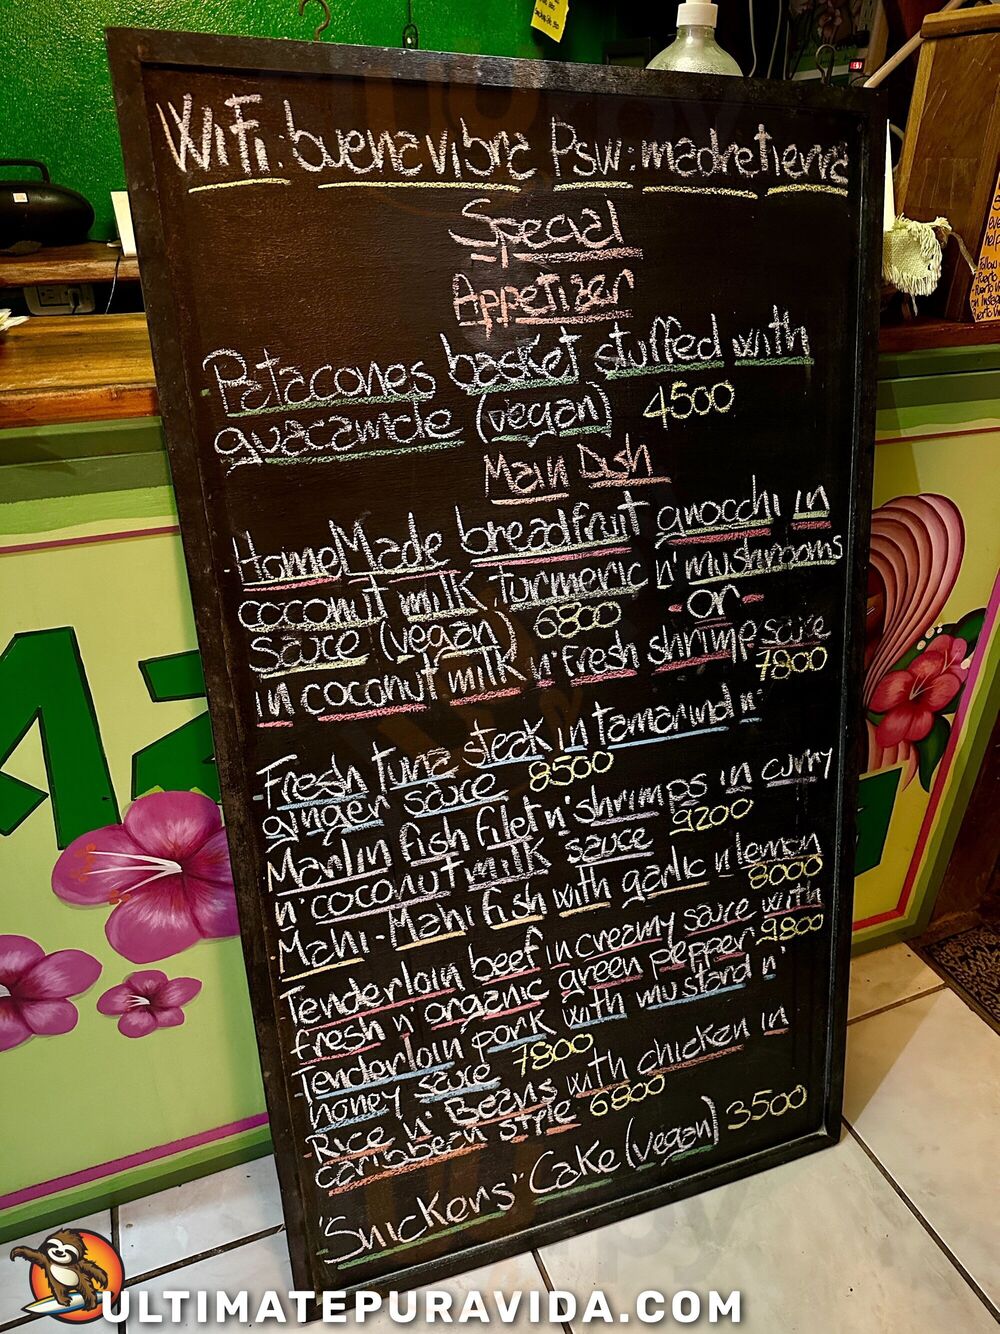 WiFi: buenavibra Psw: madretierra
Special
Appetizer
- Patacones basket stuffed with
guacamole (vegan) 4500
Main Dish
- HomeMade breadfruit gnocchi in
coconut milk, turmeric n' mushrooms
sauce (vegan) 6800 - or -
in coconut milk n' fresh shrimp sauce
7800
- Fresh tuna steak in tamarind n'
ginger sauce 8500
- Marlin fish filet n' shrimps in curry
n' coconut milk sauce 9200
- Mahi-Mahi fish with garlic n' lemon
8000
- Tenderloin beef in creamy sauce with
fresh n' organic green pepper 9800
- Tenderloin pork with mustard n'
honey sauce 7800
- Rice n' Beans with chicken in
caribbean style 6800
- "Snickers" Cake (vegan) 3500
MA
ULTIMATEPURAVIDA.COM